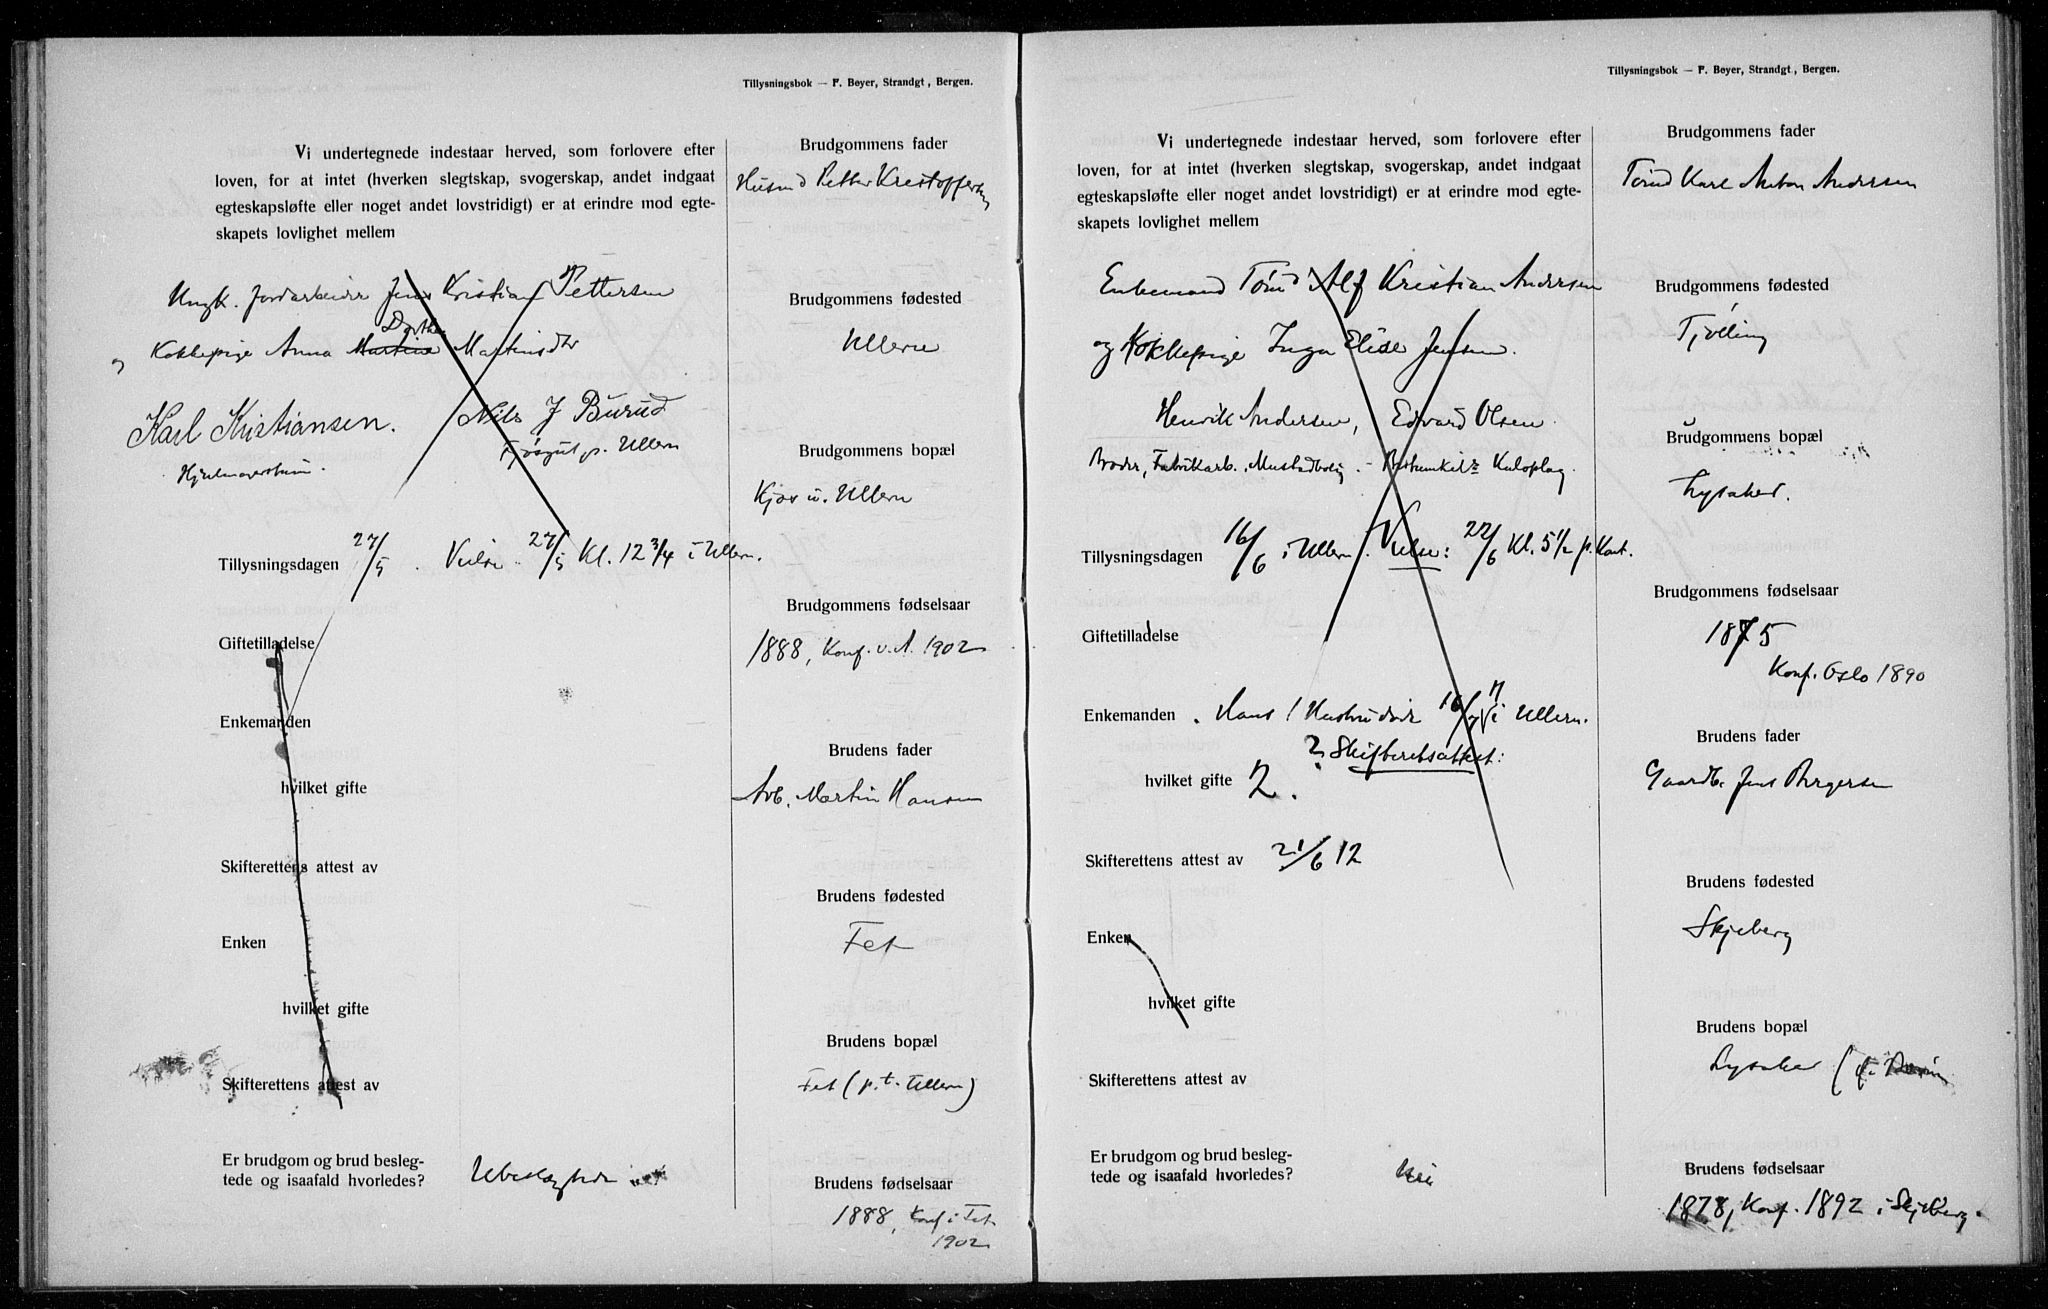 Tillysningsbok — F. Beyer, Strandgt, Bergen.
Vi undertegnede indestaar herved, som forlovere efter
loven, for at intet (hverken slegtskap, svogerskap, andet indgaat
egteskapsløfte eller noget andet lovstridigt) er at erindre mod egte-
skapets lovlighet mellem
Ungk. Jordarbeider Jens Kristian Pettersen
Dorthea
og Kokkepige Anna Martine Martinsdtr
Karl Kristiansen. Nils J Burud
p. Ullern
Tillysningsdagen 27/5. Vielse 27/5 Kl. 12 3/4 i Ullern.
Giftetilladelse
Enkemanden
hvilket gifte
Skifterettens attest av
Enken
hvilket gifte
Skifterettens attest av
Er brudgom og brud besleg-
tede og isaafald hvorledes? Ubeslægtede
Brudgommens fader
Husmd Petter Kristoffersen
Brudgommens fødested
Ullern
Brudgommens bopæl
Kjos u. Ullern
Brudgommens fødselsaar
1888, Konf. v. A. 1902
Brudens fader
Arb. Martin Hansen
Brudens fødested
Fet
Brudens bopæl
Fet (p.t. Ullern)
Brudens fødselsaar
1888, Konf. i Fet
1902
Tillysningsbok — F. Beyer, Strandgt, Bergen.
Vi undertegnede indestaar herved, som forlovere efter
loven, for at intet (hverken slegtskap, svogerskap, andet indgaat
egteskapsløfte eller noget andet lovstridigt) er at erindre mod egte-
skapets lovlighet mellem
Enkemand Tømd Alf Kristian Andersen
og Kokkepige Inga Elise Jensen.
Henrik Andersen, Edvard Olsen.
Broder, Fabrikarb.
Tillysningsdagen 16/6 i Ullern. Vielse: 22/6 Kl. 5 1/2 p. Kont.
Giftetilladelse
Enkemanden. Hans 1 Hustru døde i Ullern.
? Skifteretsattest:
hvilket gifte 2.
Skifterettens attest av 21/6 12
Enken
hvilket gifte
Skifterettens attest av
Er brudgom og brud besleg-
tede og isaafald hvorledes? Nei
Brudgommens fader
Tømd Karl Anton Andersen
Brudgommens fødested
Tjølling
Brudgommens bopæl
Lysaker.
Brudgommens fødselsaar
1875
Konf. Oslo 1890
Brudens fader
Gaardb. Jens Birgersen
Brudens fødested
Skjeberg
Brudens bopæl
Lysaker
Brudens fødselsaar
1878, Konf. 1892 i Skjeberg.